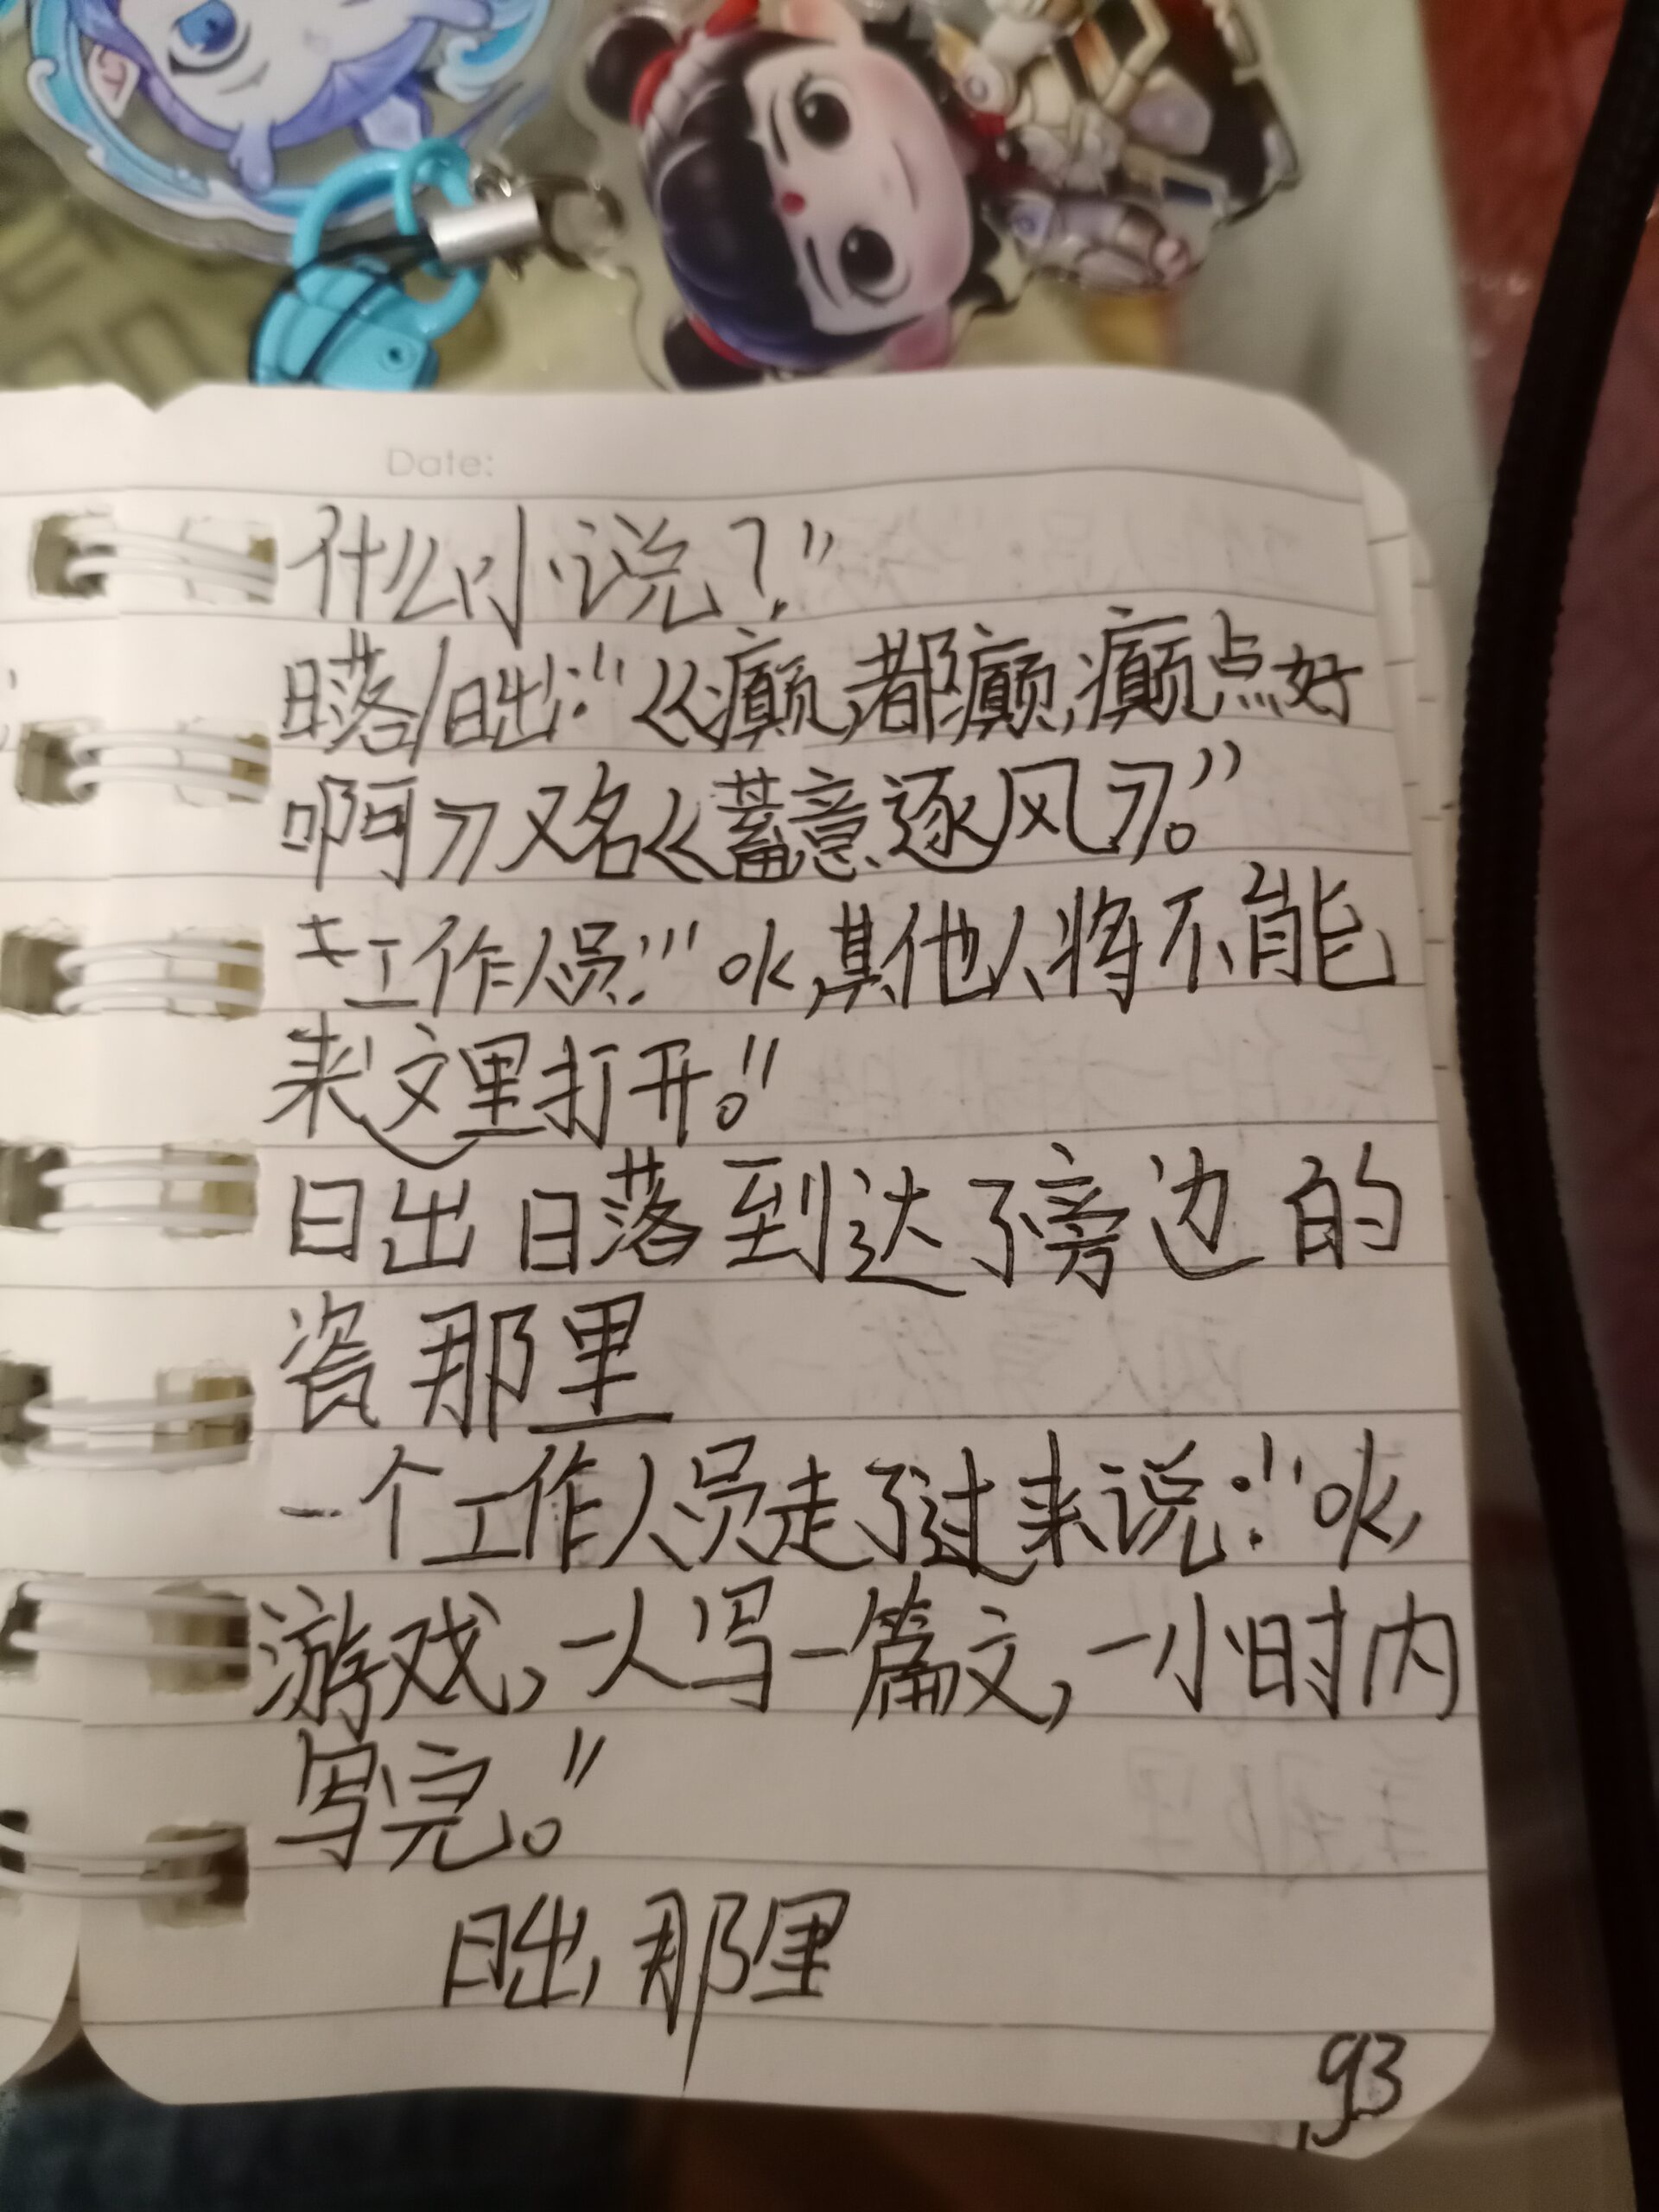 Date:
什么小说？”
日落/日出：“《癫，都癫，癫点好
啊》又名《蓄意逐风》。”
工作人员：“ok，其他人将不能
来这里打开。”
日出日落到达了旁边的
瓷那里
一个工作人员走了过来说：“ok，
游戏，一人写一篇文，一小时内
写完。”
日出，那里
93